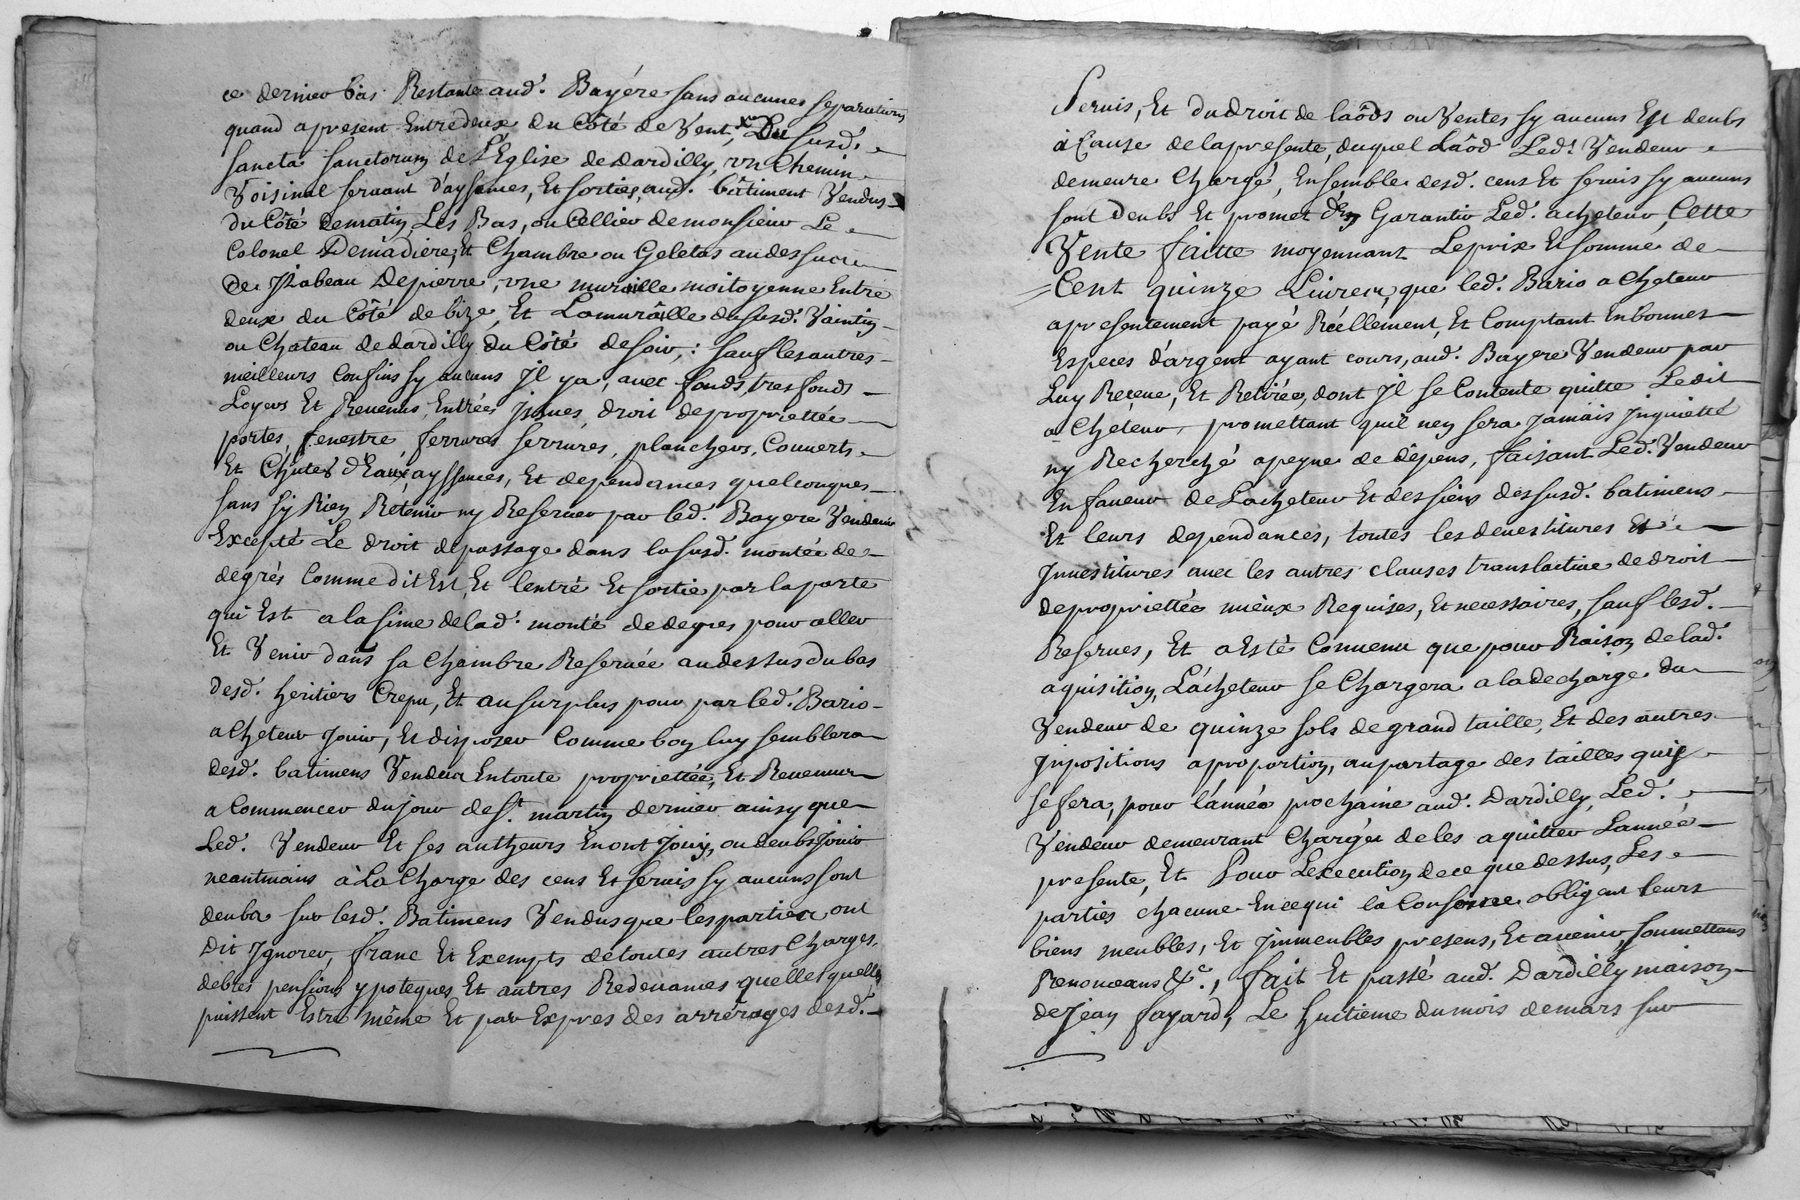 ce dernier bas Restante aud. Bayére sans aucunes separations
quand apresent Entredeux du Côté de Vent, Du susd.
sancta sanctorum de L'Eglise de dardilly, vn Chemin
Voisinal servant d'aysances, Et sorties, aud. bâtiment Vendus
du Côté de matin, Les Bas, ou Cellier de monsieur Le
Colonel Demadiere, Et Chambre ou Geletas au dessus
de Jzabeau Depierre, vne muraille moitoyenne Entre
deux du Côté de bize, Et La muraille du susd. Vaintin
ou Chateau de dardilly du Côté de soir,: sauf les autres
meilleurs Confins sy aucuns Jl ya, avec fonds, tres fonds
Loyers Et Revenus, Entrées Jssues droit de propriettée
portes, fenestre ferrures serrures, planchers, Couverts
Et Chutes d'Eaux ayssances, Et dependances quelconques
sans sy Rien Retenir ny Reserver par led. Bayere Vendeur
Excepté Le droit de passage dans la susd. montée de
degrés Comme dit Est, Et lentré Et sortie par la porte
qui Est a la sime de lad. monté de degres pour aller
Et Venir dans sa Chambre Reservée au dessus du bas
desd. heritiers Crepu, Et au surplus pour par led. Bario
acheteur Jouir, Et disposer Comme bon luy semblera
desd. batimens Vendus En toute propriettée, Et Revenus
a Commencer du jour de St. martin dernier ainsy que
Led. Vendeur Et ses autheurs En ont Jouy, ou deubs Jouir
neantmains à La Charge des cens Et servis sy aucuns sont
deubs sur lesd. Batimens Vendus que les parties ont
Dit Jgnorer, franc Et Exempts de toutes autres Charges,
debtes pensions ypoteques Et autres Redevances quelles quelles
puissent Estre même Et par Expres des arrérages desd.
Servis, Et du droit de laôds ou Ventes sy aucuns Est deubs
à Cause de la presente, duquel Laôd Led. Vendeur
demeure Chargé, Ensemble desd. cens Et servis sy aucuns
sont deubs Et promet d'en Garantir Led. acheteur, Cette
Vente faitte moyennant Le prix Et somme de
Cent quinze Livres, que led. Bario acheteur
apresentement payé Réellement, Et Comptant En bonnes
Especes d'argent ayant cours, aud. Bayere Vendeur par
Luy Reçeue, Et Retirée, dont Jl se Contente quitte Ledit
acheteur, promettant quil n'en sera Jamais Jnquietté
ny Recherché apeyne de dépens, faisant Led. Vendeur
En faveur de Lacheteur Et des siens des susd. batimens
Et leurs dependances, toutes les devestitures Et
Jnvestitures avec les autres clauses translative de droit
de propriettée mieux Requises, Et necessaires, sauf lesd.
Reserves, Et a Esté Convenu que pour Raison de lad.
aquisition, L'acheteur se Chargera a la decharge du
Vendeur de quinze sols de grand taille, Et des autres
Jmpositions a proportion, au partage des tailles qui
se fera, pour l'année prochaine aud. Dardilly, Led.
Vendeur demeurant Chargée de les aquitter Lannée
presente, Et Pour Lexecution de ce que dessus, Les
parties chacune En ce qui la Conserne obligent leurs
biens meubles, Et Jmmeubles presens, Et avenir, soumettans
Renonceans &c., fait Et passé aud. Dardilly maison
de Jean fayard, Le huitième du mois de mars sur